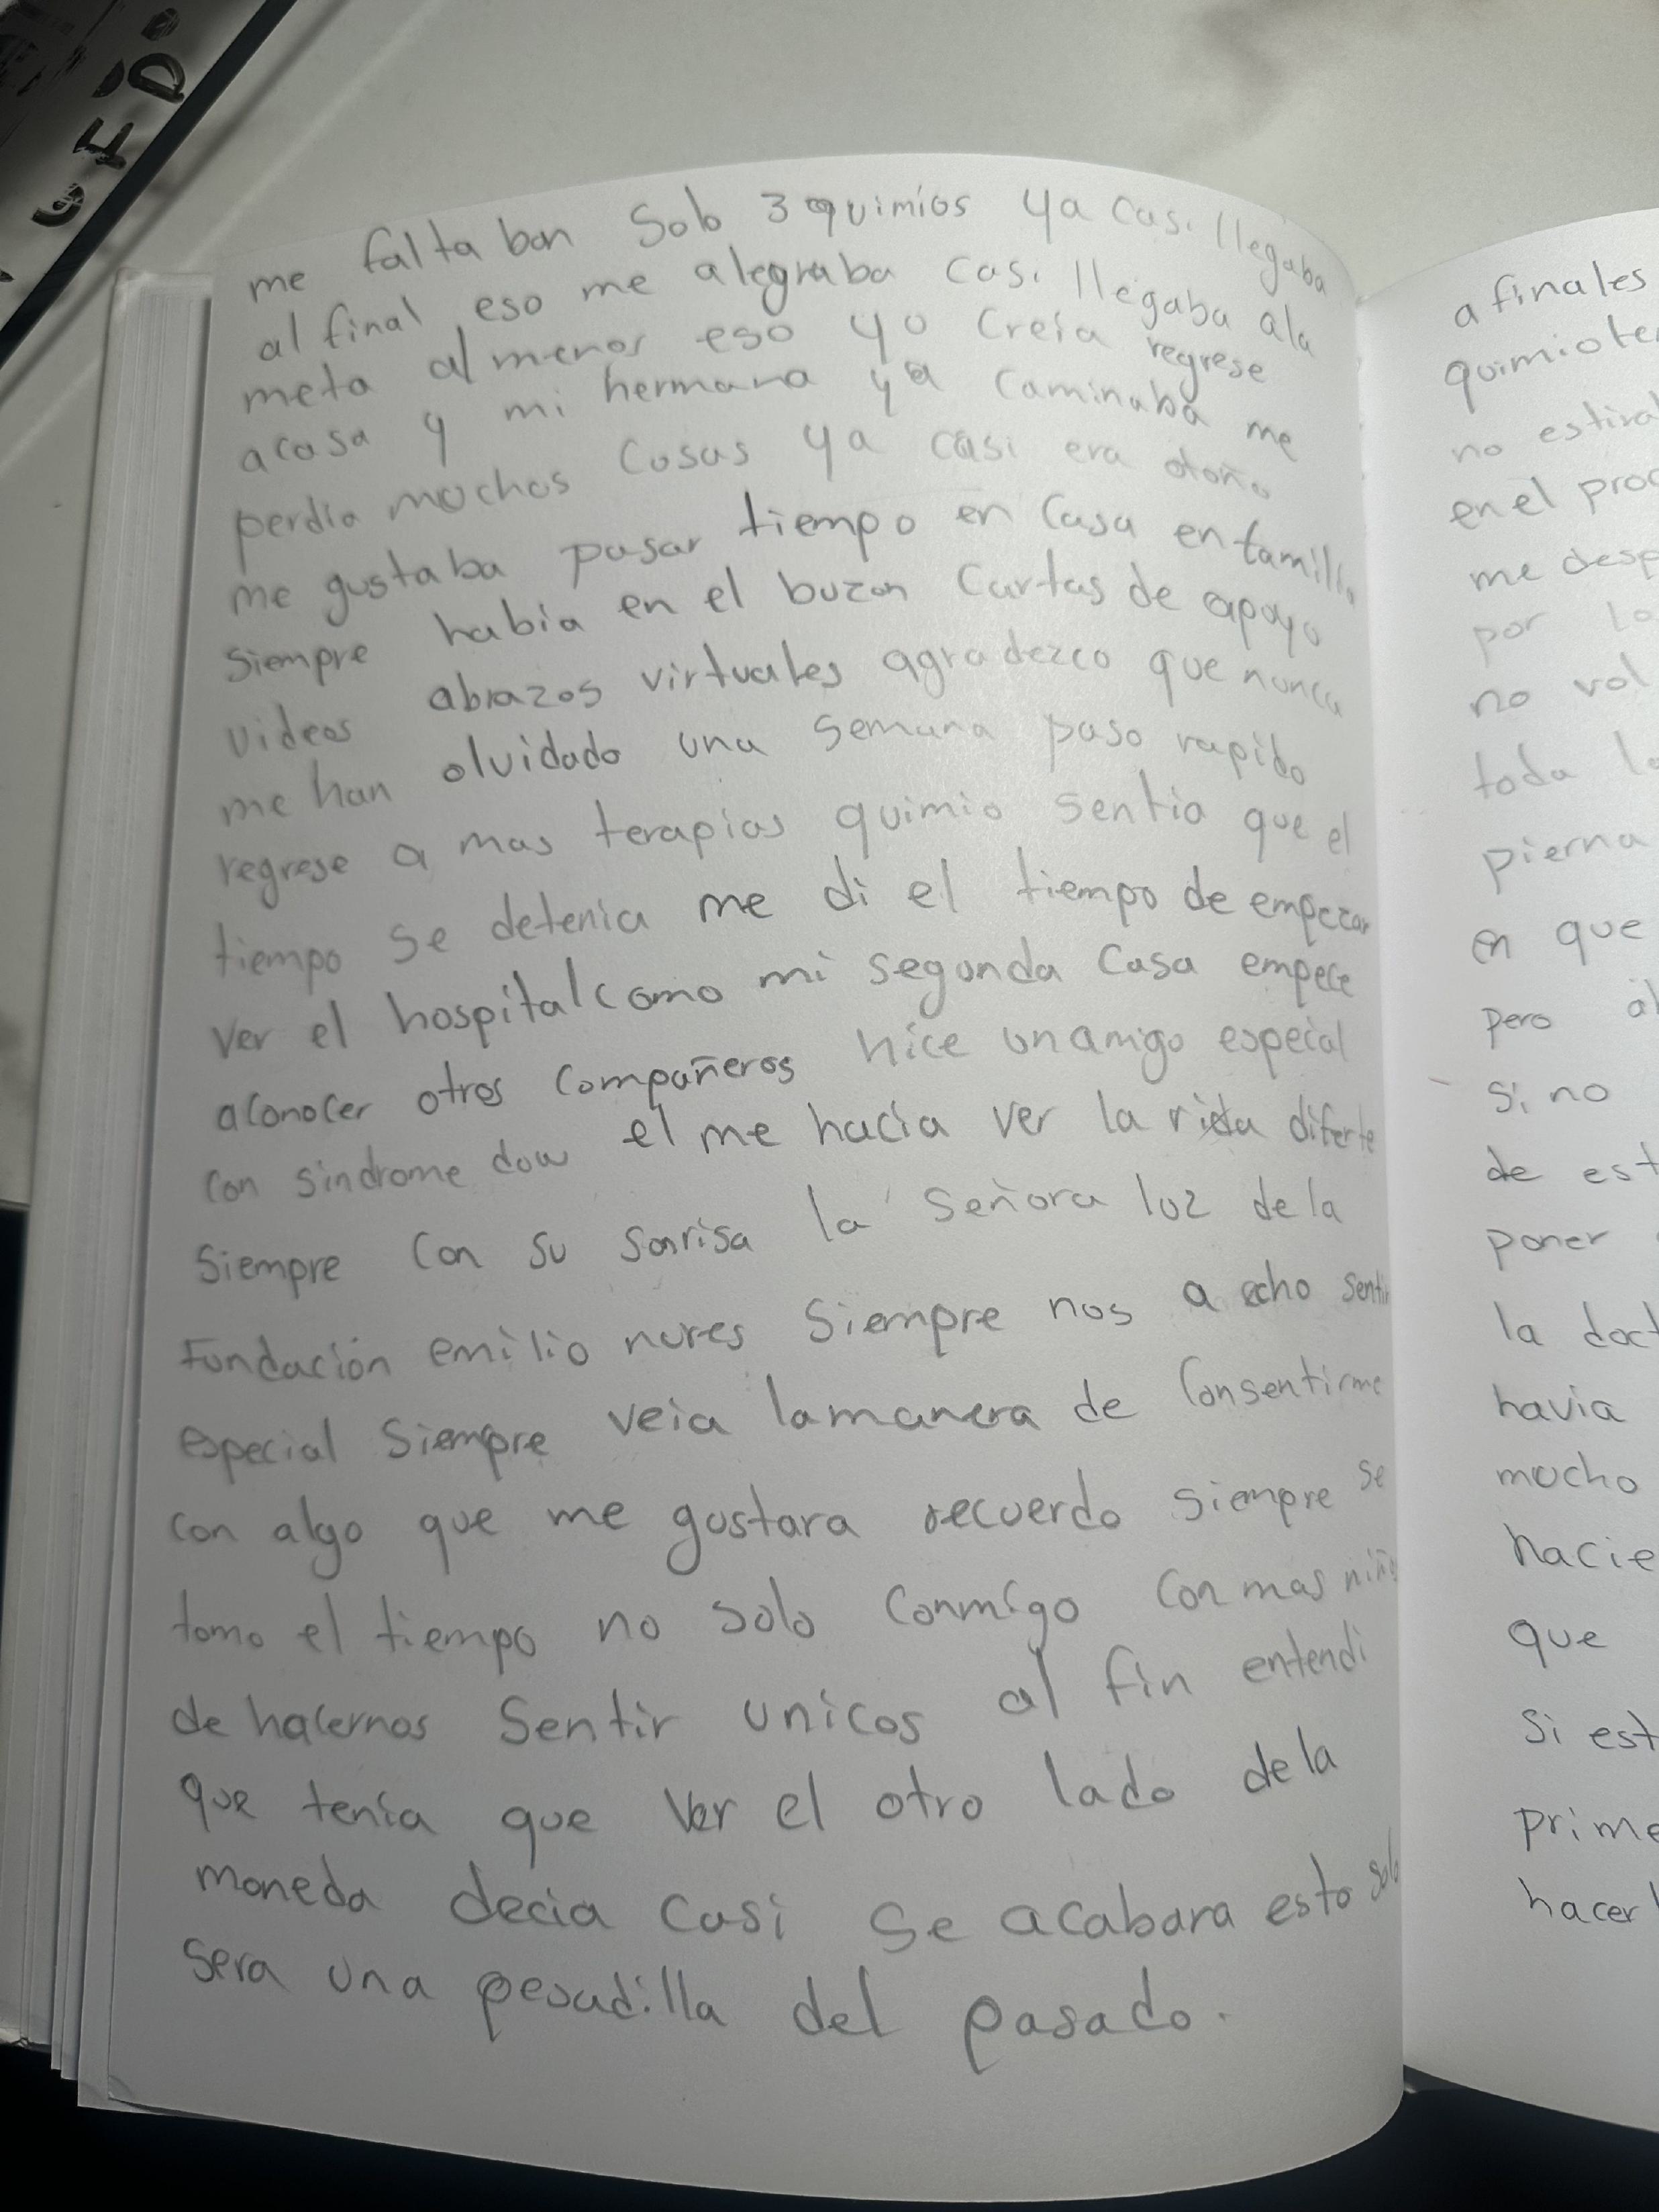 me faltaban solo 3 quimios ya casi llegaba
al final eso me alegraba casi llegaba ala
meta al menos eso yo creía regrese
acasa y mi hermana ya caminaba me
perdía muchas cosas ya casi era otoño
me gustaba pasar tiempo en casa en familia
siempre había en el buzon cartas de apoyo
videos abrazos virtuales agradezco que nunca
me han olvidado una semana paso rapido
regrese a mas terapias quimio sentia que el
tiempo se detenia me di el tiempo de empezar
ver el hospital como mi segunda casa empece
aconocer otros compañeros hice un amigo especial
con sindrome dow el me hacia ver la vida diferte
siempre con su sonrisa la señora luz dela
Fundación emilio nures siempre nos a echo sentir
especial siempre veia lamanera de consentirme
con algo que me gustara recuerdo siempre se
tomo el tiempo no solo conmigo con mas niños
de hacernos sentir unicos al fin entendi
que tenía que ver el otro lado dela
moneda decia casi se acabara esto solo
sera una pesadilla del pasado.
a finales
quimiote
no estira
en el proc
me desp
por lo
no vol
toda l
pierna
en que
pero al
si no
de est
poner
la doct
havia
mucho
hacie
que
si est
prime
hacer